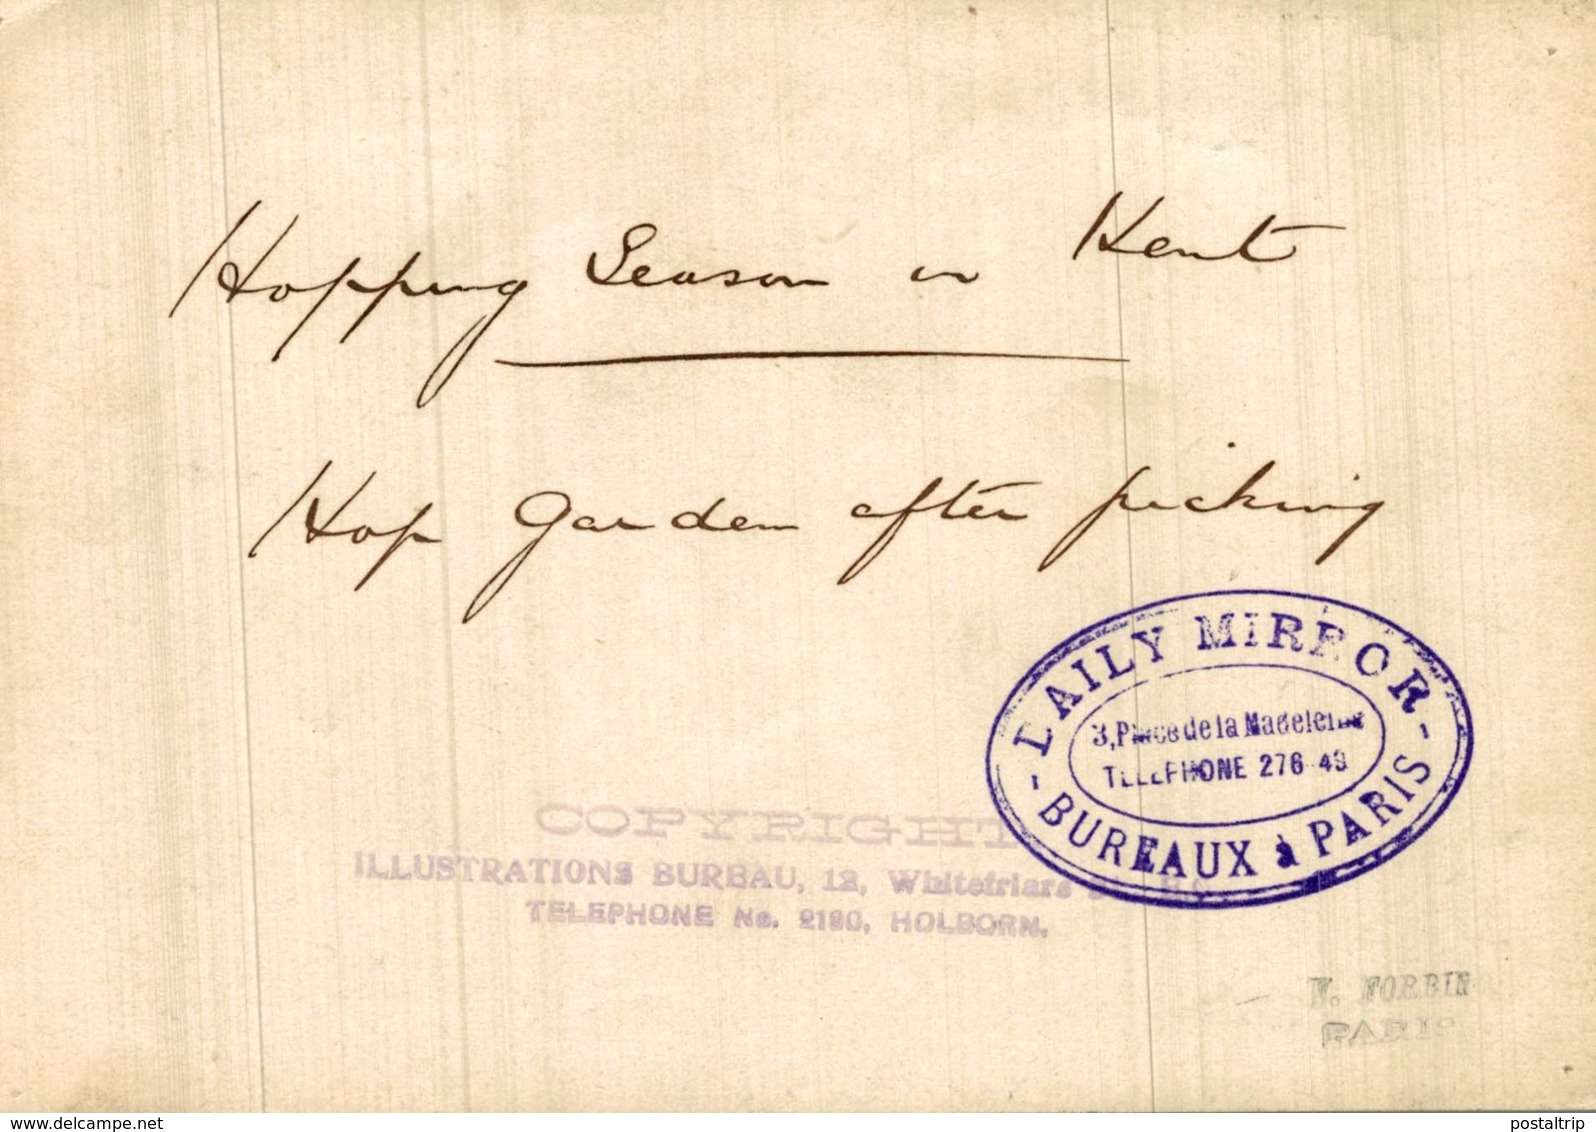 Hopping Season in Kent
Hop Garden after picking
DAILY MIRROR
3, Place de la Madeleine
TELEPHONE 276-49
- BUREAUX à PARIS -
COPYRIGHT
ILLUSTRATIONS BUREAU, 12, Whitefriars St., E.C.
TELEPHONE No. 2190, HOLBORN.
V. FORBIN
PARIS
www.delcampe.net
postaltrip